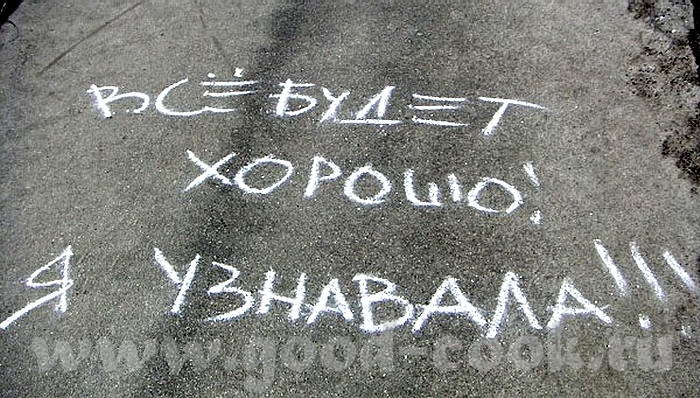 ВСЁ БУДЕТ
ХОРОШО!
Я УЗНАВАЛА!!!
www.good-cook.ru